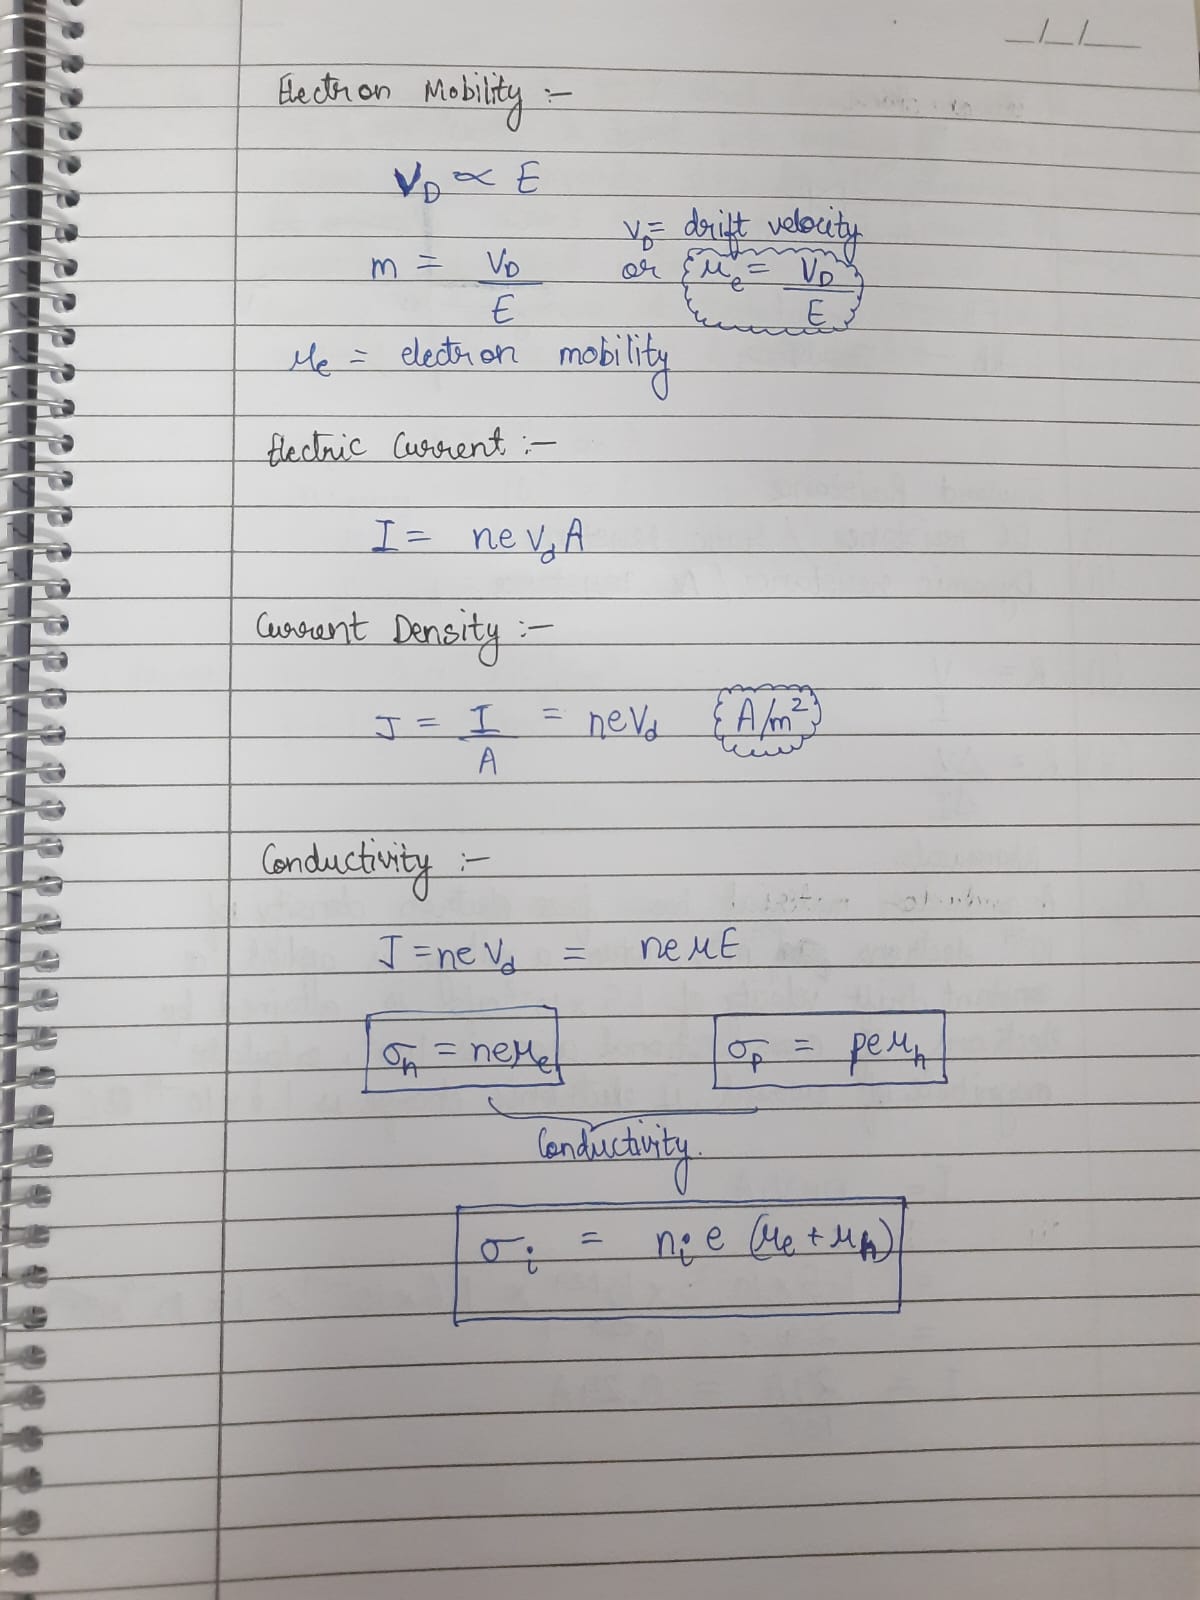 _/_/_
Electron Mobility :-
V_D ∝ E
V_D = drift velocity
m = V_D / E or μ_e = V_D / E
μ_e = electron mobility
Electric Current :-
I = neV_dA
Current Density :-
J = I / A = neV_d A/m²
Conductivity :-
J = neV_d = neμE
σ_n = neμ_e σ_p = peμ_h
Conductivity.
σ_i = n_i e (μ_e + μ_h)